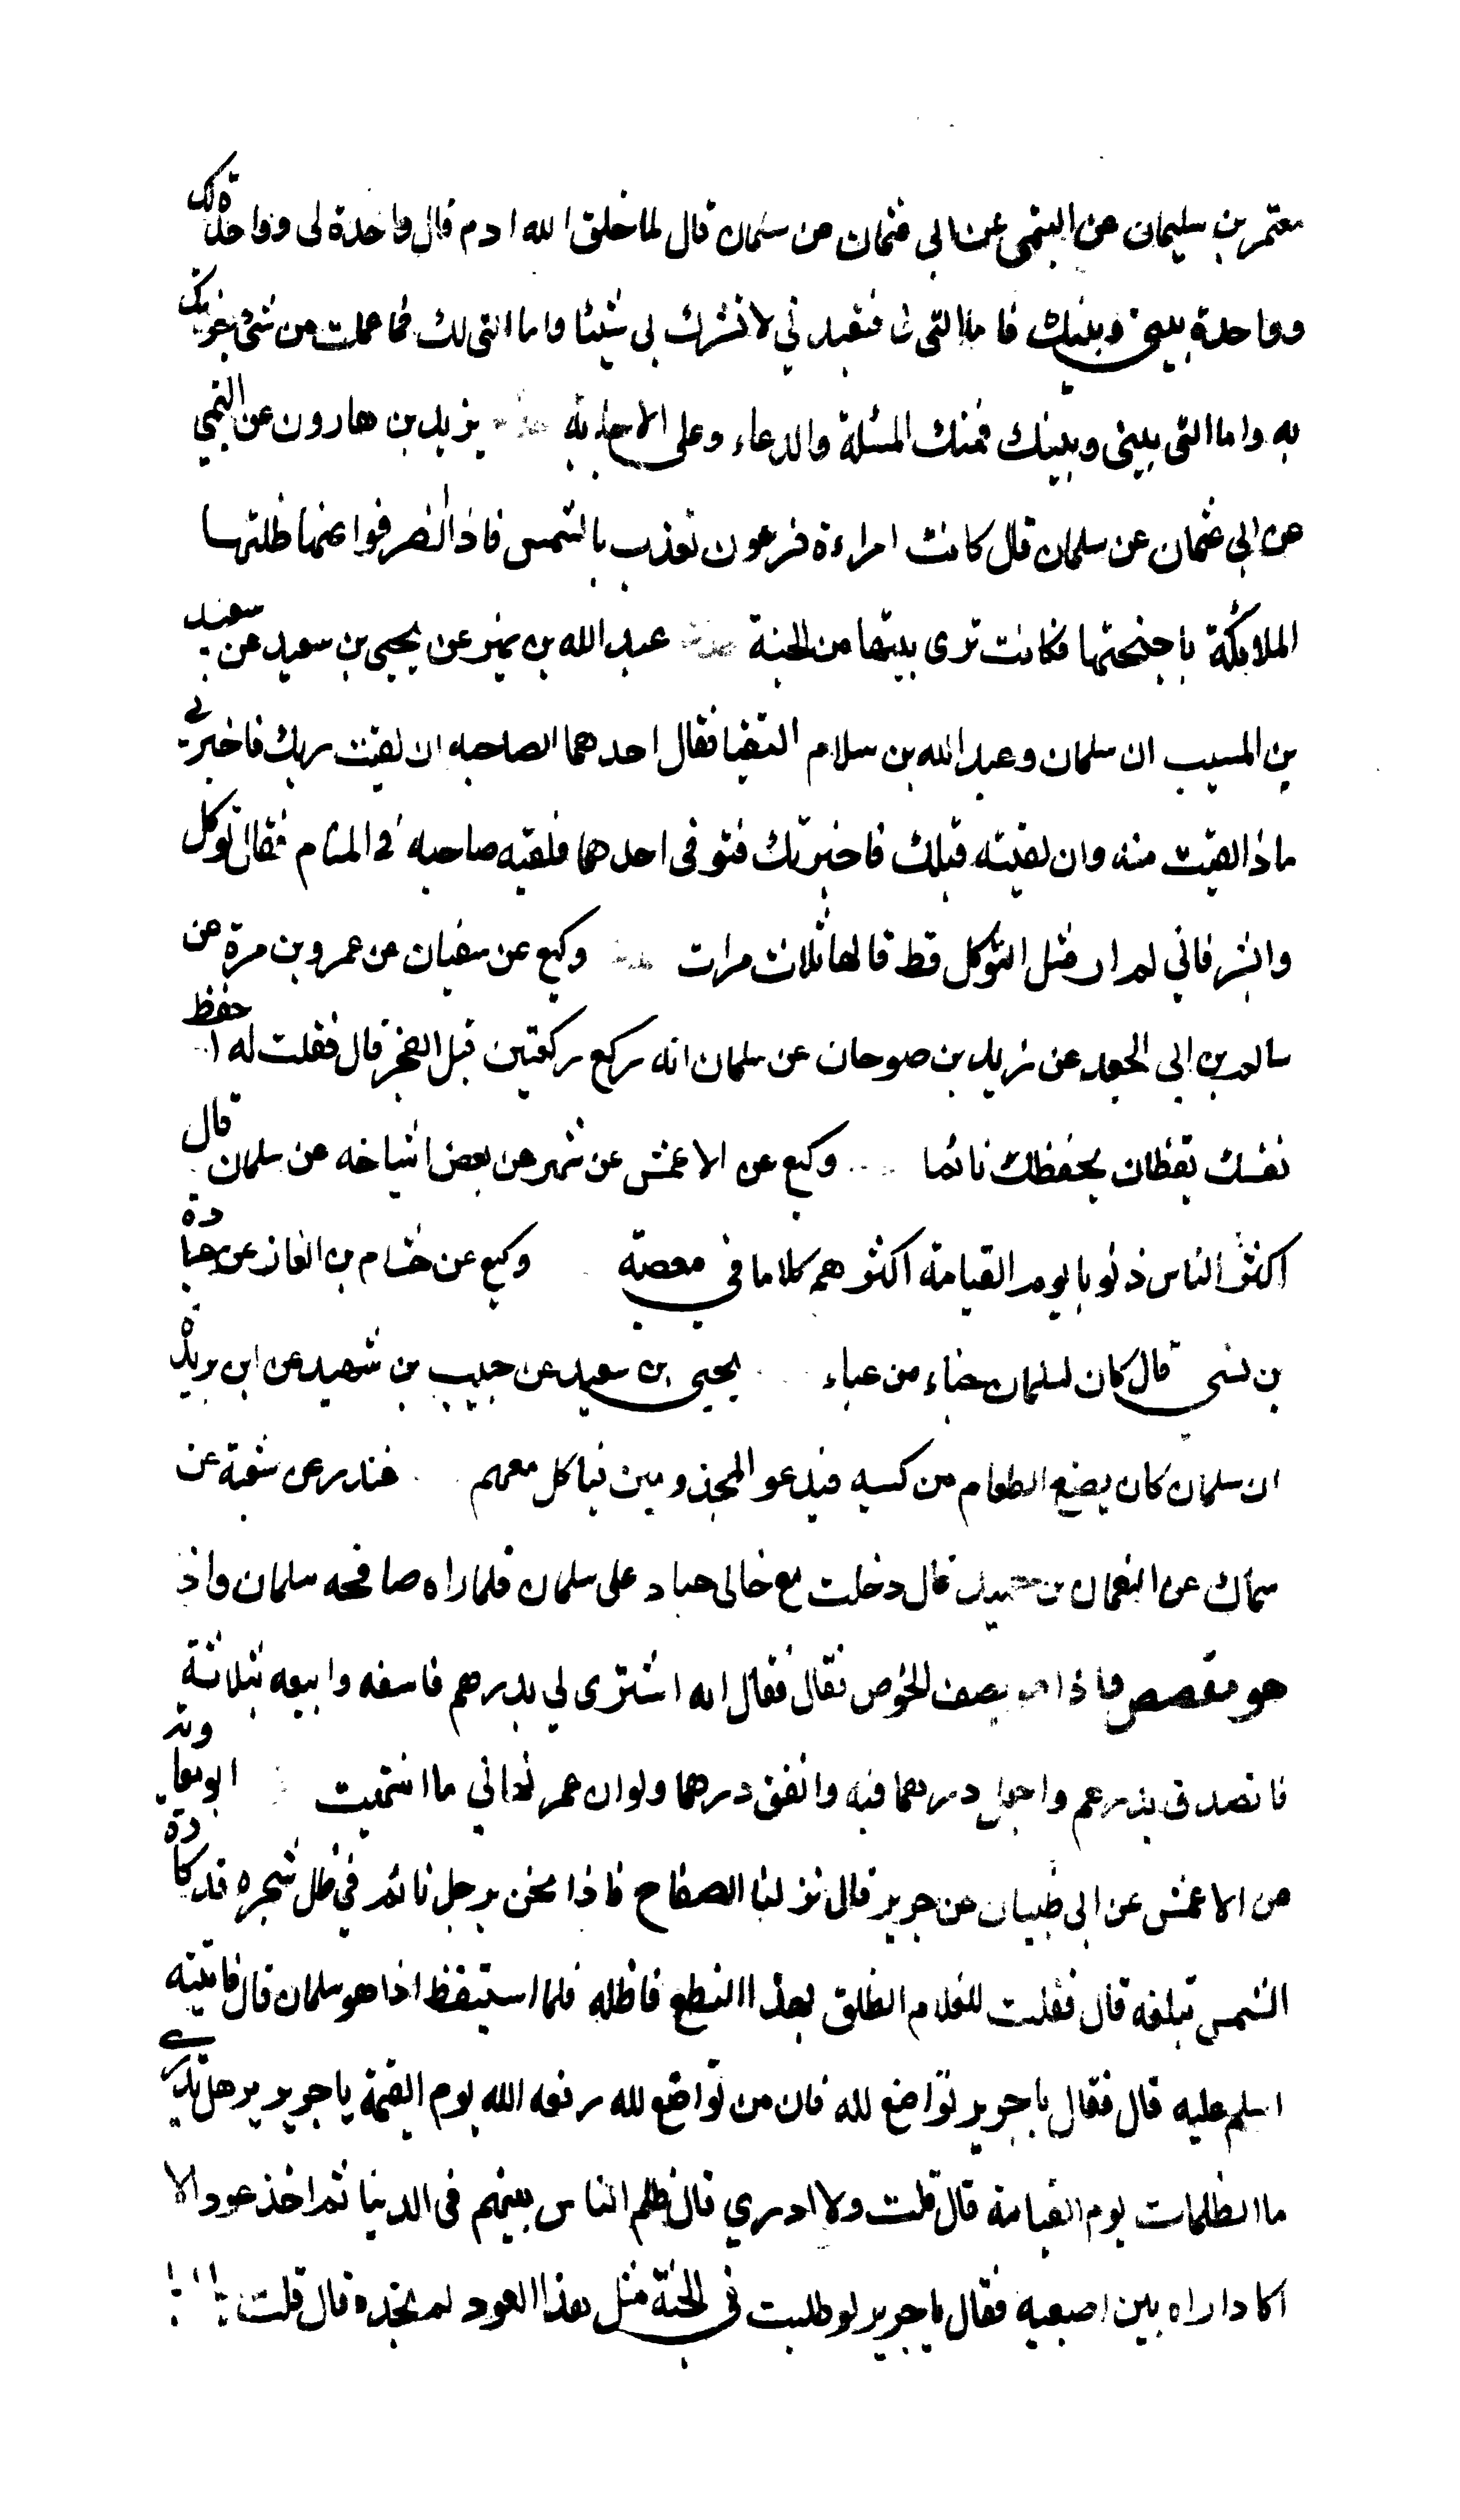 معتمر بن سليمان عن التيمى عن ابى عثمان عن سلمان قال لما خلق الله ادم قال واحدة لى وواحدة لك
وواحدة بينى وبينك فاما التى لى فتعبدني لا تشرك بى شيئا واما التى لك فما عملت من شئ جزيتك
به واما التى بينى وبينك فمنك المسئلة والدعاء وعلى الاجابة يزيد بن هارون عن التيمي
عن ابى عثمان عن سلمان قال كانت امراءة فرعون تعذب بالشمس فاذا انصرفوا عنها ظلتها
الملائكة باجنحتها فكانت ترى بيتها من الجنة عبد الله بن نمير عن يحيى بن سعيد عن سعيد
بن المسيب ان سلمان وعبد الله بن سلام التقيا فقال احدهما لصاحبه ان لقيت ربك فاخبرني
ماذا لقيت منه وان لقيته قبلك فاخبرتك فتوفى احدهما فلقيه صاحبه فى المنام فقال توكل
وابشر فاني لم ار مثل التوكل قط قالها ثلاث مرات وكيع عن سفيان عن عمرو بن مرة عن
سالم بن ابى الجعد عن زيد بن صوحان عن سلمان انه ركع ركعتين قبل الفجر قال فقلت له احفظ
نفسك يقظان يحفظك نائما وكيع عن الاعمش عن شمر عن بعض اشياخه عن سلمان قال
اكثر الناس ذنوبا يوم القيامة اكثرهم كلاما في معصية وكيع عن هشام بن الغاز عن عبادة
بن نسى قال كان لسلمان خباء من عباء يحيى بن سعيد عن حبيب بن شهيد عن ابن بريدة
ان سلمان كان يصنع الطعام من كسبه فيدعو المجذومين فياكل معهم غندر عن شعبة عن
سماك عن النعمان بن حميد قال دخلت مع خالى عباد على سلمان فلما راه صافحه سلمان واذا
هو مقصص واذا هو يصف الخوص فقال فقال انه اشترى لي بدرهم فاسفه وابيعه بثلاثة
فاتصدق بدرهم واجعل درهما فيه وانفق درهما ولو ان عمر نهاني ما انتهيت ابو معاوية
عن الاعمش عن ابى ظبيان عن جرير قال نزلنا الصفاح فاذا نحن برجل نائم في ظل شجره قد كادة
الشمس تبلغه قال فقلت للغلام انطلق بهذا النطع فاظله فلما استيقظ اذا هو سلمان قال فاتيته
اسلم عليه قال فقال يا جرير تواضع لله فان من تواضع لله رفعه الله يوم القيمة يا جرير هل تدري
ما الظلمات يوم القيامة قال قلت ولا ادري قال ظلم الناس بينهم فى الدنيا ثم اخذ عودا لا
اكاد اراه بين اصبعيه فقال يا جرير لو طلبت في الجنة مثل هذا العود لم تجده قال قلت